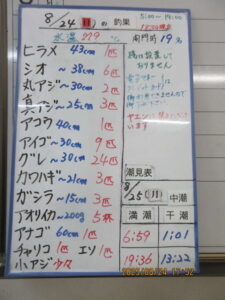 8/24(日)の釣果
水温 27.9 ℃
ヒラメ 43cm 1匹
シオ ~38cm 6匹
丸アジ ~30cm 2匹
真アジ ~25cm 3匹
アコウ 40cm 1匹
アイゴ ~30cm 9匹
グレ ~30cm 24匹
カワハギ ~21cm 3匹
ガシラ ~15cm 3匹
アオリイカ ~200g 5杯
アナゴ 60cm 1匹
チャリコ 1匹 エソ 1匹
小アジ 少々
5:00~19:00
入門者 19名
潮見表
8/25(月) 中潮
満潮 干潮
6:59 1:01
19:36 13:22